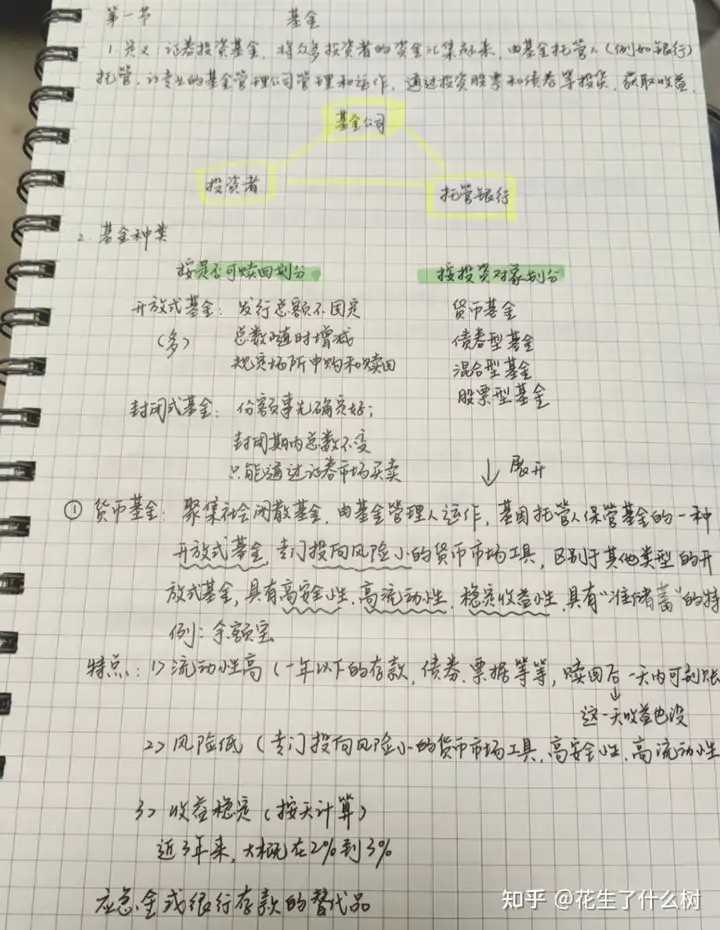 第一节 基金
1.定义：证券投资基金，将众多投资者的资金汇集起来，由基金托管人（例如银行）
托管，让专业的基金管理公司管理和运作，通过投资股票和债券等投资，获取收益.
基金公司
投资者
托管银行
2.基金种类
按是否可赎回划分 按投资对象划分
开放式基金：发行总额不固定 货币基金
（多） 总数随时增减 债券型基金
规定场所申购和赎回 混合型基金
股票型基金
封闭式基金：份额事先确定好；
封闭期内总数不变
只能通过证券市场买卖 ↓展开
①货币基金：聚集社会闲散基金，由基金管理人运作，基因托管人保管基金的一种
开放式基金，专门投向风险小的货币市场工具，区别于其他类型的开
放式基金，具有高安全性、高流动性、稳定收益性，具有“准储蓄”的特
例：余额宝
特点：1>流动性高（一年以下的存款、债券、票据等等，赎回后一天内可到账
↓
这一天收益也没
2>风险低（专门投向风险小的货币市场工具、高安全性、高流动性
3>收益稳定（按天计算）
近3年来，大概在2%到3%
应急金或银行存款的替代品
知乎 @花生了什么树